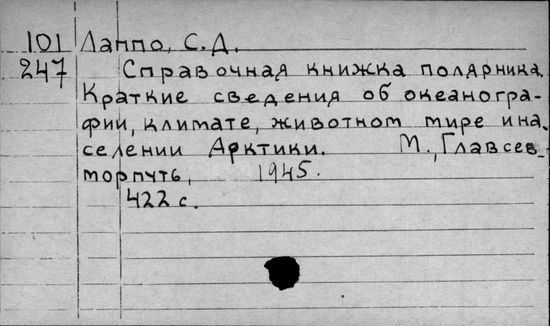 101 Лаппо, С.Д.
247 Справочная книжка полярника.
Краткие сведения об океаногра-
фии, климате, животном мире и на-
селении Арктики. М., Главсев-
морпуть, 1945.
422 с.